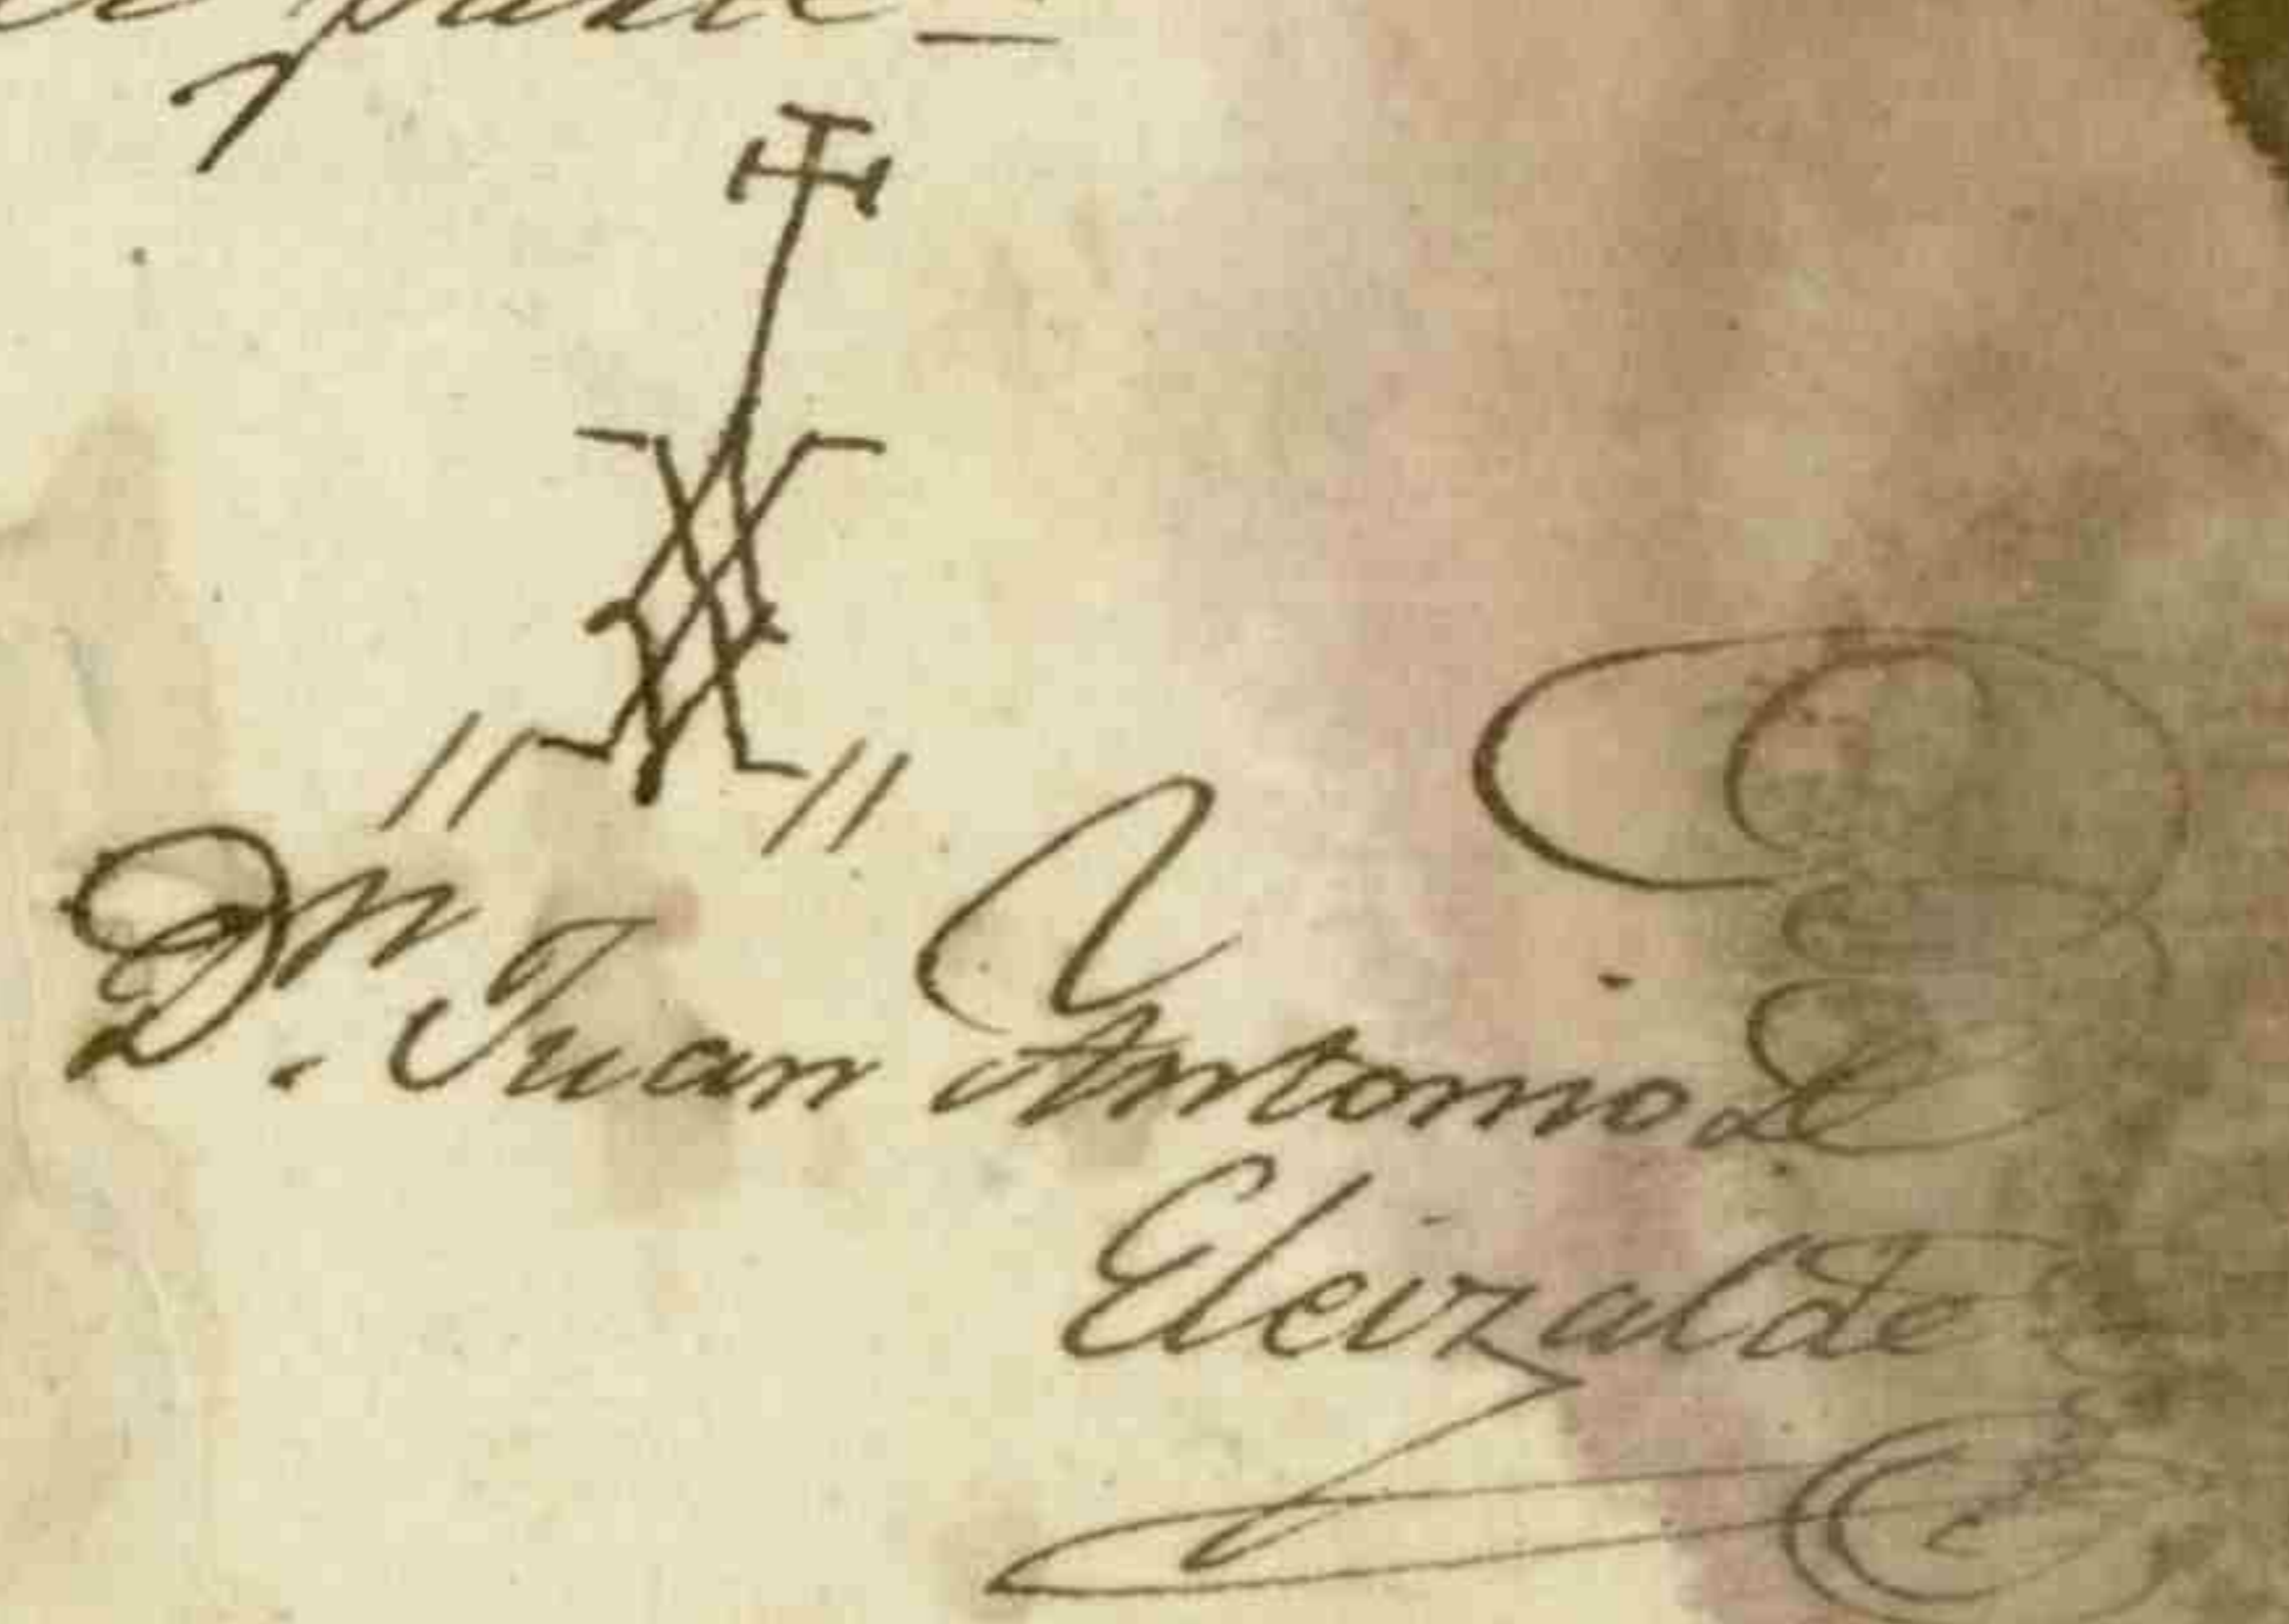 Dn. Juan Antonio de
Eleizalde